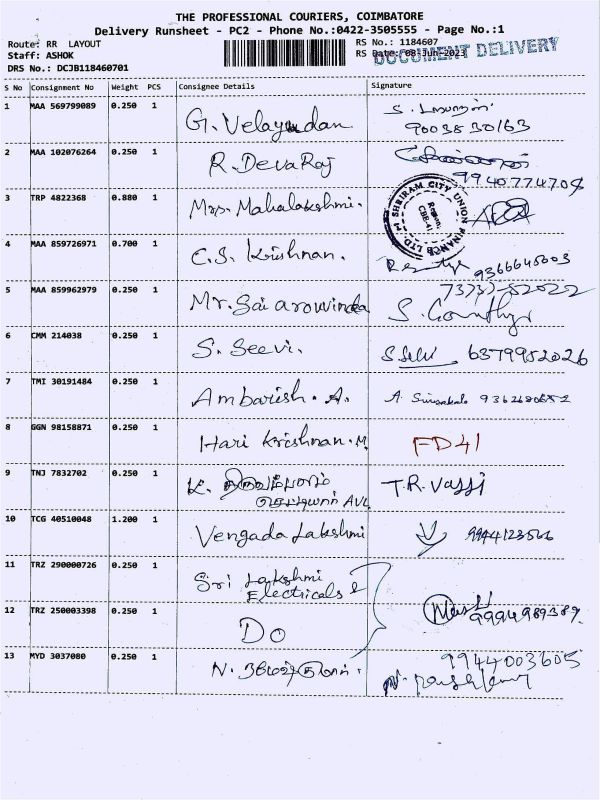 THE PROFESSIONAL COURIERS, COIMBATORE
Delivery Runsheet - PC2 - Phone No.:0422-3505555 - Page No.:1
Route: RR LAYOUT
RS No.: 1184607
Staff: ASHOK
RS Date: 08-Jun-2023
DOCUMENT DELIVERY
DRS No.: DCJB118460701
S No Consignment No Weight PCS Consignee Details Signature
1 MAA 569799089 0.250 1 G. Velayudan S.
9003830163
2 MAA 102076264 0.250 1 R. Devaraj
9940774704
3 TRP 4822368 0.880 1 Mrs. Mahalakshmi.
SHRIRAM CITY UNION FINANCE LTD.
Region,
CBE-41
4 MAA 859726971 0.700 1 C.S. Krishnan.
9366645603
5 MAA 859962979 0.250 1 Mr. Sai arouvinda
S.
6 CMM 214038 0.250 1 S. Seevi. S. Selvi 6379952026
7 TMI 30191484 0.250 1 Ambarish. A. A.
8 GGN 98158871 0.250 1 Hari Krishnan. M FD41
9 TNJ 7832702 0.250 1 K. T.R. Vassi
AVL
10 TCG 40510048 1.200 1 Vengada Lakshmi 9944123566
11 TRZ 290000726 0.250 1 Sri Lakshmi
Electricals
12 TRZ 250003398 0.250 1 Do
9994989389.
13 MYD 3037080 0.250 1 N. 9944003605
N.